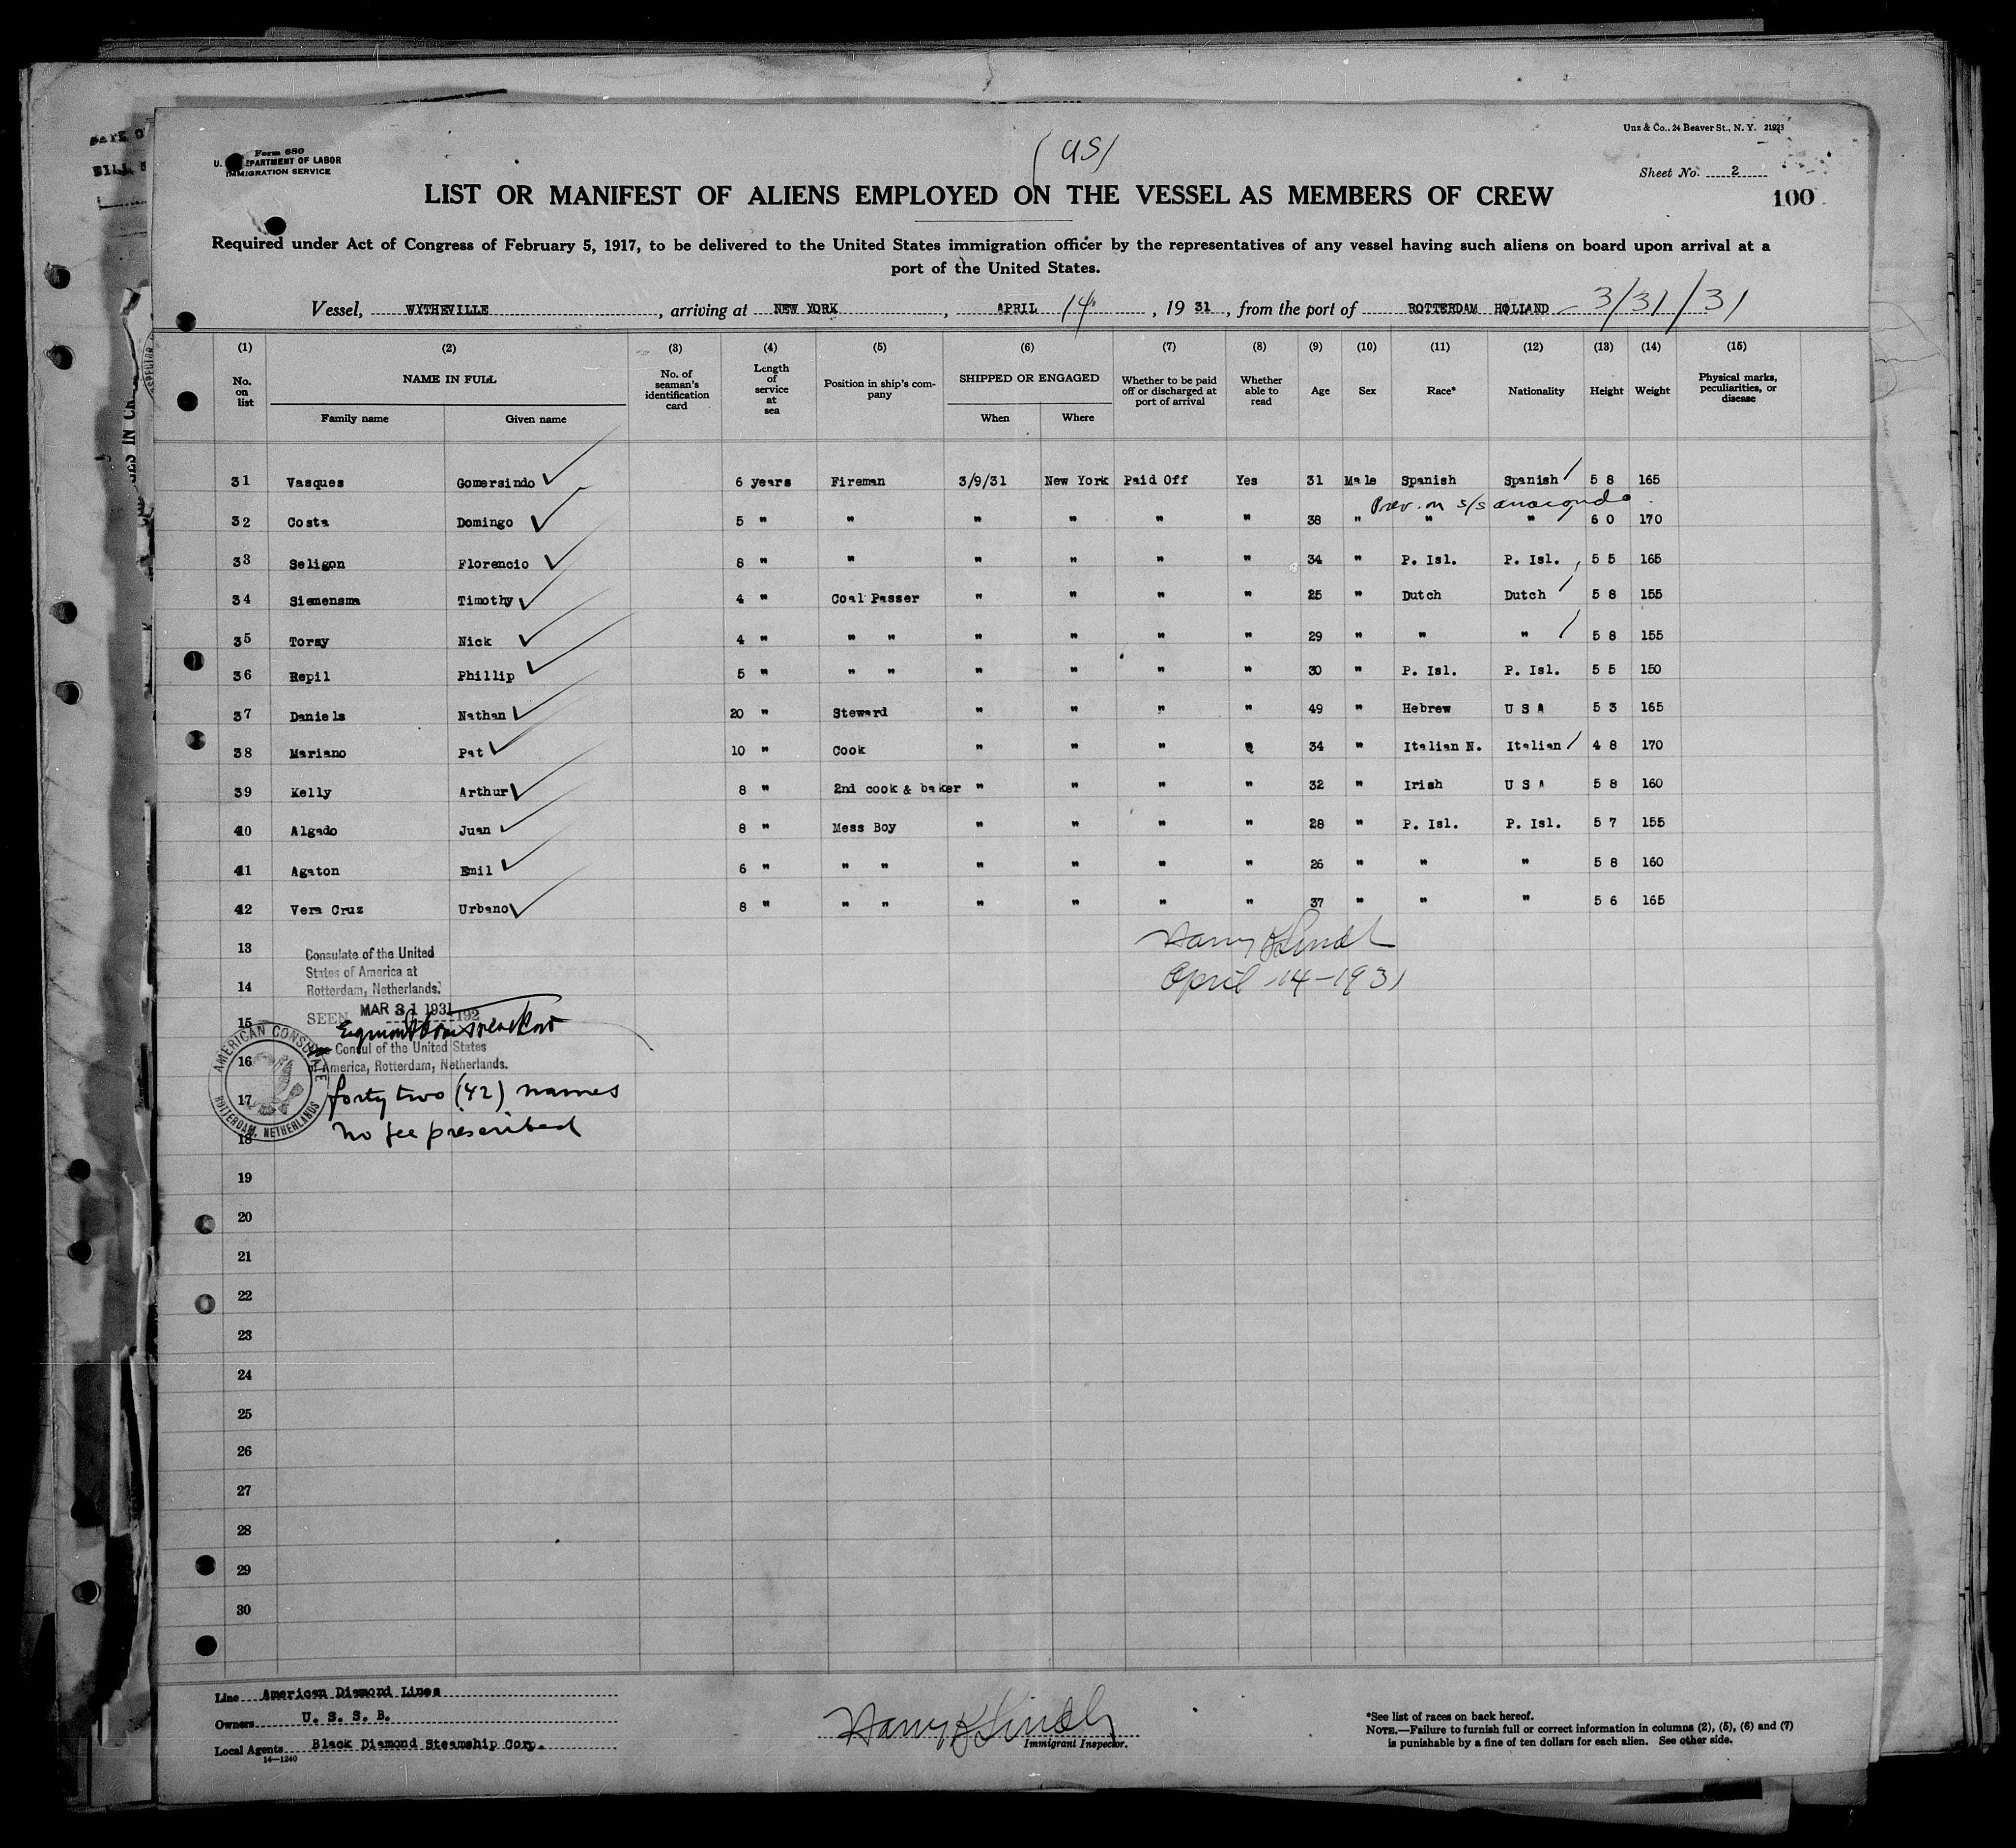 Form 680
U. S. DEPARTMENT OF LABOR
IMMIGRATION SERVICE
(US)
Unz & Co., 24 Beaver St., N. Y. 21923
Sheet No. 2
100
LIST OR MANIFEST OF ALIENS EMPLOYED ON THE VESSEL AS MEMBERS OF CREW
Required under Act of Congress of February 5, 1917, to be delivered to the United States immigration officer by the representatives of any vessel having such aliens on board upon arrival at a
port of the United States.
Vessel, WYTHEVILLE, arriving at NEW YORK, APRIL 14, 1931, from the port of ROTTERDAM HOLLAND - 3/31/31
(1) (2) (3) (4) (5) (6) (7) (8) (9) (10) (11) (12) (13) (14) (15)
No. on list NAME IN FULL Family name Given name No. of seaman's identification card Length of service at sea Position in ship's company SHIPPED OR ENGAGED When Where Whether to be paid off or discharged at port of arrival Whether able to read Age Sex Race* Nationality Height Weight Physical marks, peculiarities, or disease
31 Vasques Gomersindo 6 years Fireman 3/9/31 New York Paid Off Yes 31 Male Spanish Spanish 5 8 165
Prev. on s/s anaconda
32 Costa Domingo 5 " " " " " " 38 " " " 6 0 170
33 Seligon Florencio 8 " " " " " " 34 " P. Isl. P. Isl. 5 5 165
34 Siemensma Timothy 4 " Coal Passer " " " " 25 " Dutch Dutch 5 8 155
35 Toray Nick 4 " " " " " " " 29 " " " 5 8 155
36 Repil Phillip 5 " " " " " " " 30 " P. Isl. P. Isl. 5 5 150
37 Daniels Nathan 20 " Steward " " " " 49 " Hebrew U S A 5 3 165
38 Mariano Pat 10 " Cook " " " " 34 " Italian N. Italian 4 8 170
39 Kelly Arthur 8 " 2nd cook & baker " " " " 32 " Irish U S A 5 8 160
40 Algado Juan 8 " Mess Boy " " " " 28 " P. Isl. P. Isl. 5 7 155
41 Agaton Emil 6 " " " " " " " 26 " " " 5 8 160
42 Vera Cruz Urbano 8 " " " " " " " 37 " " " 5 6 165
13
14
15
16
17
18
19
20
21
22
23
24
25
26
27
28
29
30
Consulate of the United
States of America at
Rotterdam, Netherlands.
SEEN MAR 31 1931 192
Consul of the United States
America, Rotterdam, Netherlands.
AMERICAN CONSULATE
ROTTERDAM, NETHERLANDS
forty two (42) names
no fee prescribed
Harry
April 14-1931
Line American Diamond Lines
Owners U. S. S. B.
Local Agents Black Diamond Steamship Corp.
14-1240
Harry
Immigrant Inspector.
*See list of races on back hereof.
NOTE.—Failure to furnish full or correct information in columns (2), (5), (6) and (7)
is punishable by a fine of ten dollars for each alien. See other side.